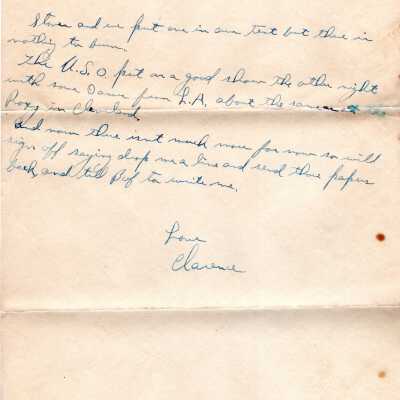 Stove and we put one in our tent but there is
nothing to burn.
The U.S.O. put on a good show the other night
with some Dame from L.A. about the same as the
Roxy in Cleveland
And now there isn't much more for now so will
sign off saying drop me a line and send those papers
back, and tell to write me.
Love
Clarence